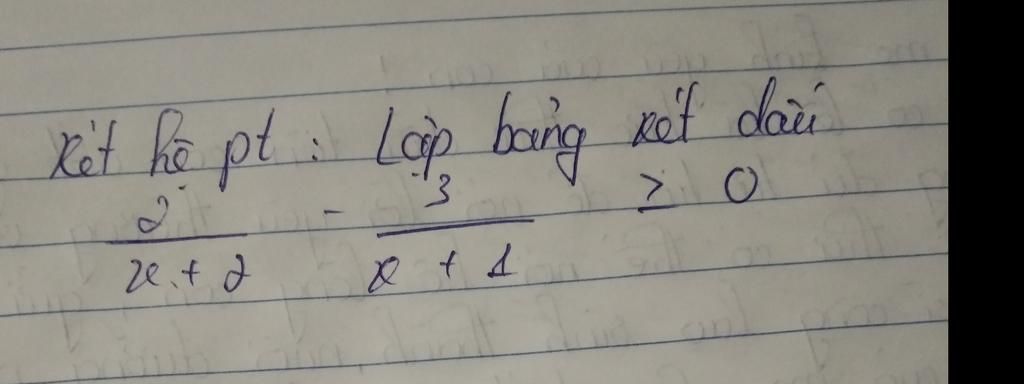 Xét hệ pt : Lập bảng xét dấu
2/(x + 2) - 3/(x + 1) ≥ 0